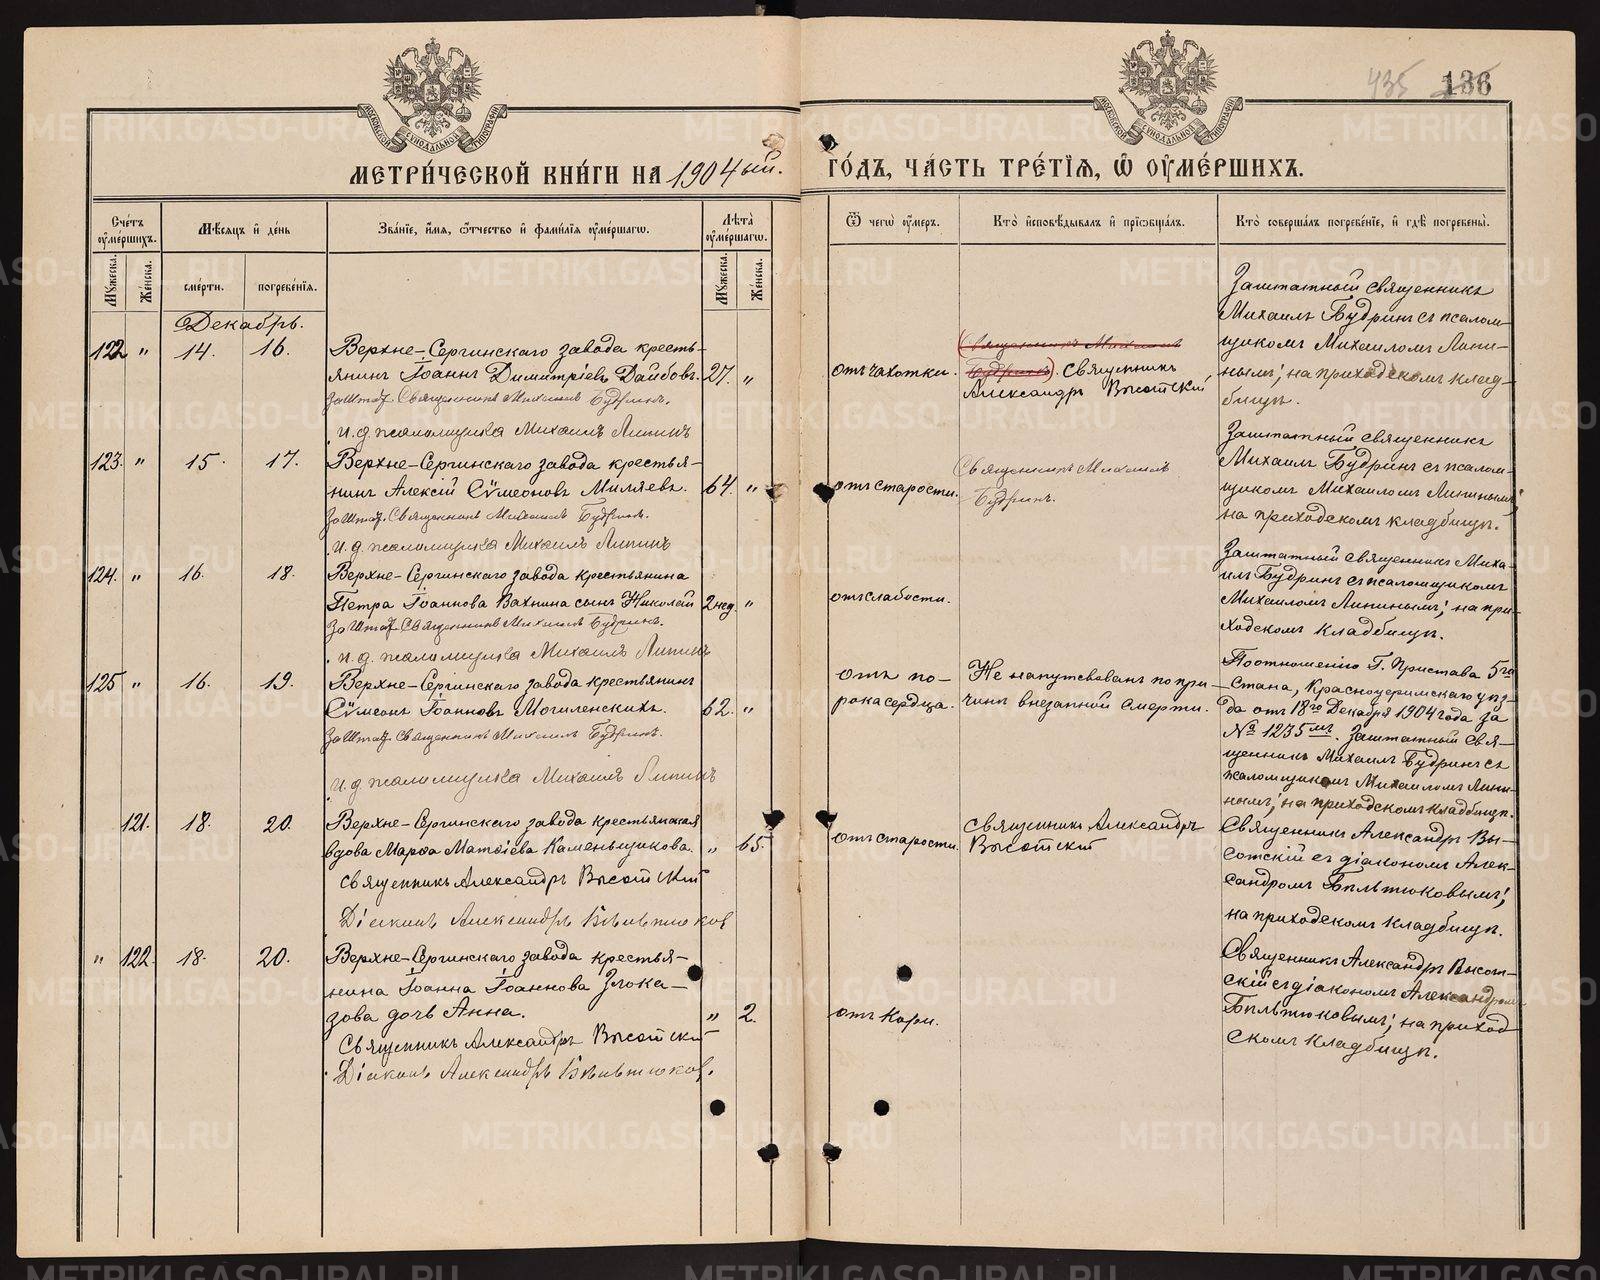 435 136
МОСКОВСКОЙ СѴНОДАЛЬНОЙ ТИПОГРАФІИ
МОСКОВСКОЙ СѴНОДАЛЬНОЙ ТИПОГРАФІИ
МЕТРИ́ЧЕСКОЙ КНИ́ГИ НА 1904ый. ГО́ДЪ, ЧА́СТЬ ТРЕ́ТІѦ, Ѡ҆ ОУ҆МЕ́РШИХЪ.
Сче́тъ оу҆ме́ршихъ.
Мѣ́сѧцъ и҆ де́нь
Зва́нїе, и҆́мѧ, ѻ҆́тчество и҆ фами́лїѧ оу҆ме́ршагѡ.
Лѣ́та оу҆ме́ршагѡ.
Ѿ чегѡ̀ оу҆́меръ.
Кто̀ и҆сповѣ́дывалъ и҆ прїѡбща́лъ.
Кто̀ соверша́лъ погребе́нїе, и҆ гдѣ̀ погребены̀.
Мꙋ́жеска. Же́нска. сме́рти. погребе́нїѧ. Мꙋ́жеска. Же́нска.
Декабрь.
122 " 14. 16.
Верхне-Сергинскаго завода кресть-
янинъ Іоаннъ Димитріевъ Дайбовъ.
Заштат. Священникъ Михаилъ Будринъ.
и.д. псаломщика Михаилъ Липинъ
27. "
отъ чахотки.
(Священникъ Михаилъ
Будринъ). Священникъ
Александръ Высотскій
Заштатный священникъ
Михаилъ Будринъ съ псалом-
щикомъ Михаиломъ Липи-
нымъ; на приходскомъ клад-
бищѣ.
123. " 15. 17.
Верхне-Сергинскаго завода крестья-
нинъ Алексій Сѵмеоновъ Миляевъ.
Заштат. Священникъ Михаилъ Будринъ.
и.д. псаломщика Михаилъ Липинъ
64. "
отъ старости.
Священникъ Михаилъ
Будринъ.
Заштатный священникъ
Михаилъ Будринъ съ псалом-
щикомъ Михаиломъ Липинымъ;
на приходскомъ кладбищѣ.
124. " 16. 18.
Верхне-Сергинскаго завода крестьянина
Петра Іоаннова Вахнина сынъ Николай
Заштат Священникъ Михаилъ Будринъ.
и.д. псаломщика Михаилъ Липинъ
2 нед. "
отъ слабости.
Заштатный священникъ Миха-
илъ Будринъ съ псаломщикомъ
Михаиломъ Липинымъ; на при-
ходскомъ кладбищѣ.
125 " 16. 19.
Верхне-Сергинскаго завода крестьянинъ
Сѵмеонъ Іоанновъ Могиленскихъ.
Заштат Священникъ Михаилъ Будринъ.
и.д. псаломщика Михаилъ Липинъ
62. "
отъ по-
рока сердца.
Не напутствованъ по при-
чинѣ внезапной смерти.
По отношенію Г. Пристава 5го
Стана, Красноуфимскаго уѣз-
да отъ 18го Декабря 1904 года за
№ 1235мъ. Заштатный Свя-
щенникъ Михаилъ Будринъ съ
псаломщикомъ Михаиломъ Липи-
нымъ; на приходскомъ кладбищѣ.
121. 18. 20.
Верхне-Сергинскаго завода крестьянская
вдова Марѳа Матѳіева Каменьщикова.
Священникъ Александръ Высотскій
Діаконъ Александръ Бѣлътюков
" 65.
отъ старости.
Священникъ Александръ
Высотскій
Священникъ Александръ Вы-
сотскій съ діакономъ Алек-
сандромъ Бѣлътюковымъ;
на приходскомъ кладбищѣ.
" 122. 18. 20.
Верхне-Сергинскаго завода крестья-
нина Іоанна Іоаннова Злока-
зова дочь Анна.
Священникъ Александръ Высотскій
Діаконъ Александръ Бѣлътюков.
" 2.
отъ кори.
Священникъ Александръ Высот-
скій съ діакономъ Александромъ
Бѣлътюковымъ; на приход
скомъ кладбищѣ.
METRIKI.GASO-URAL.RU